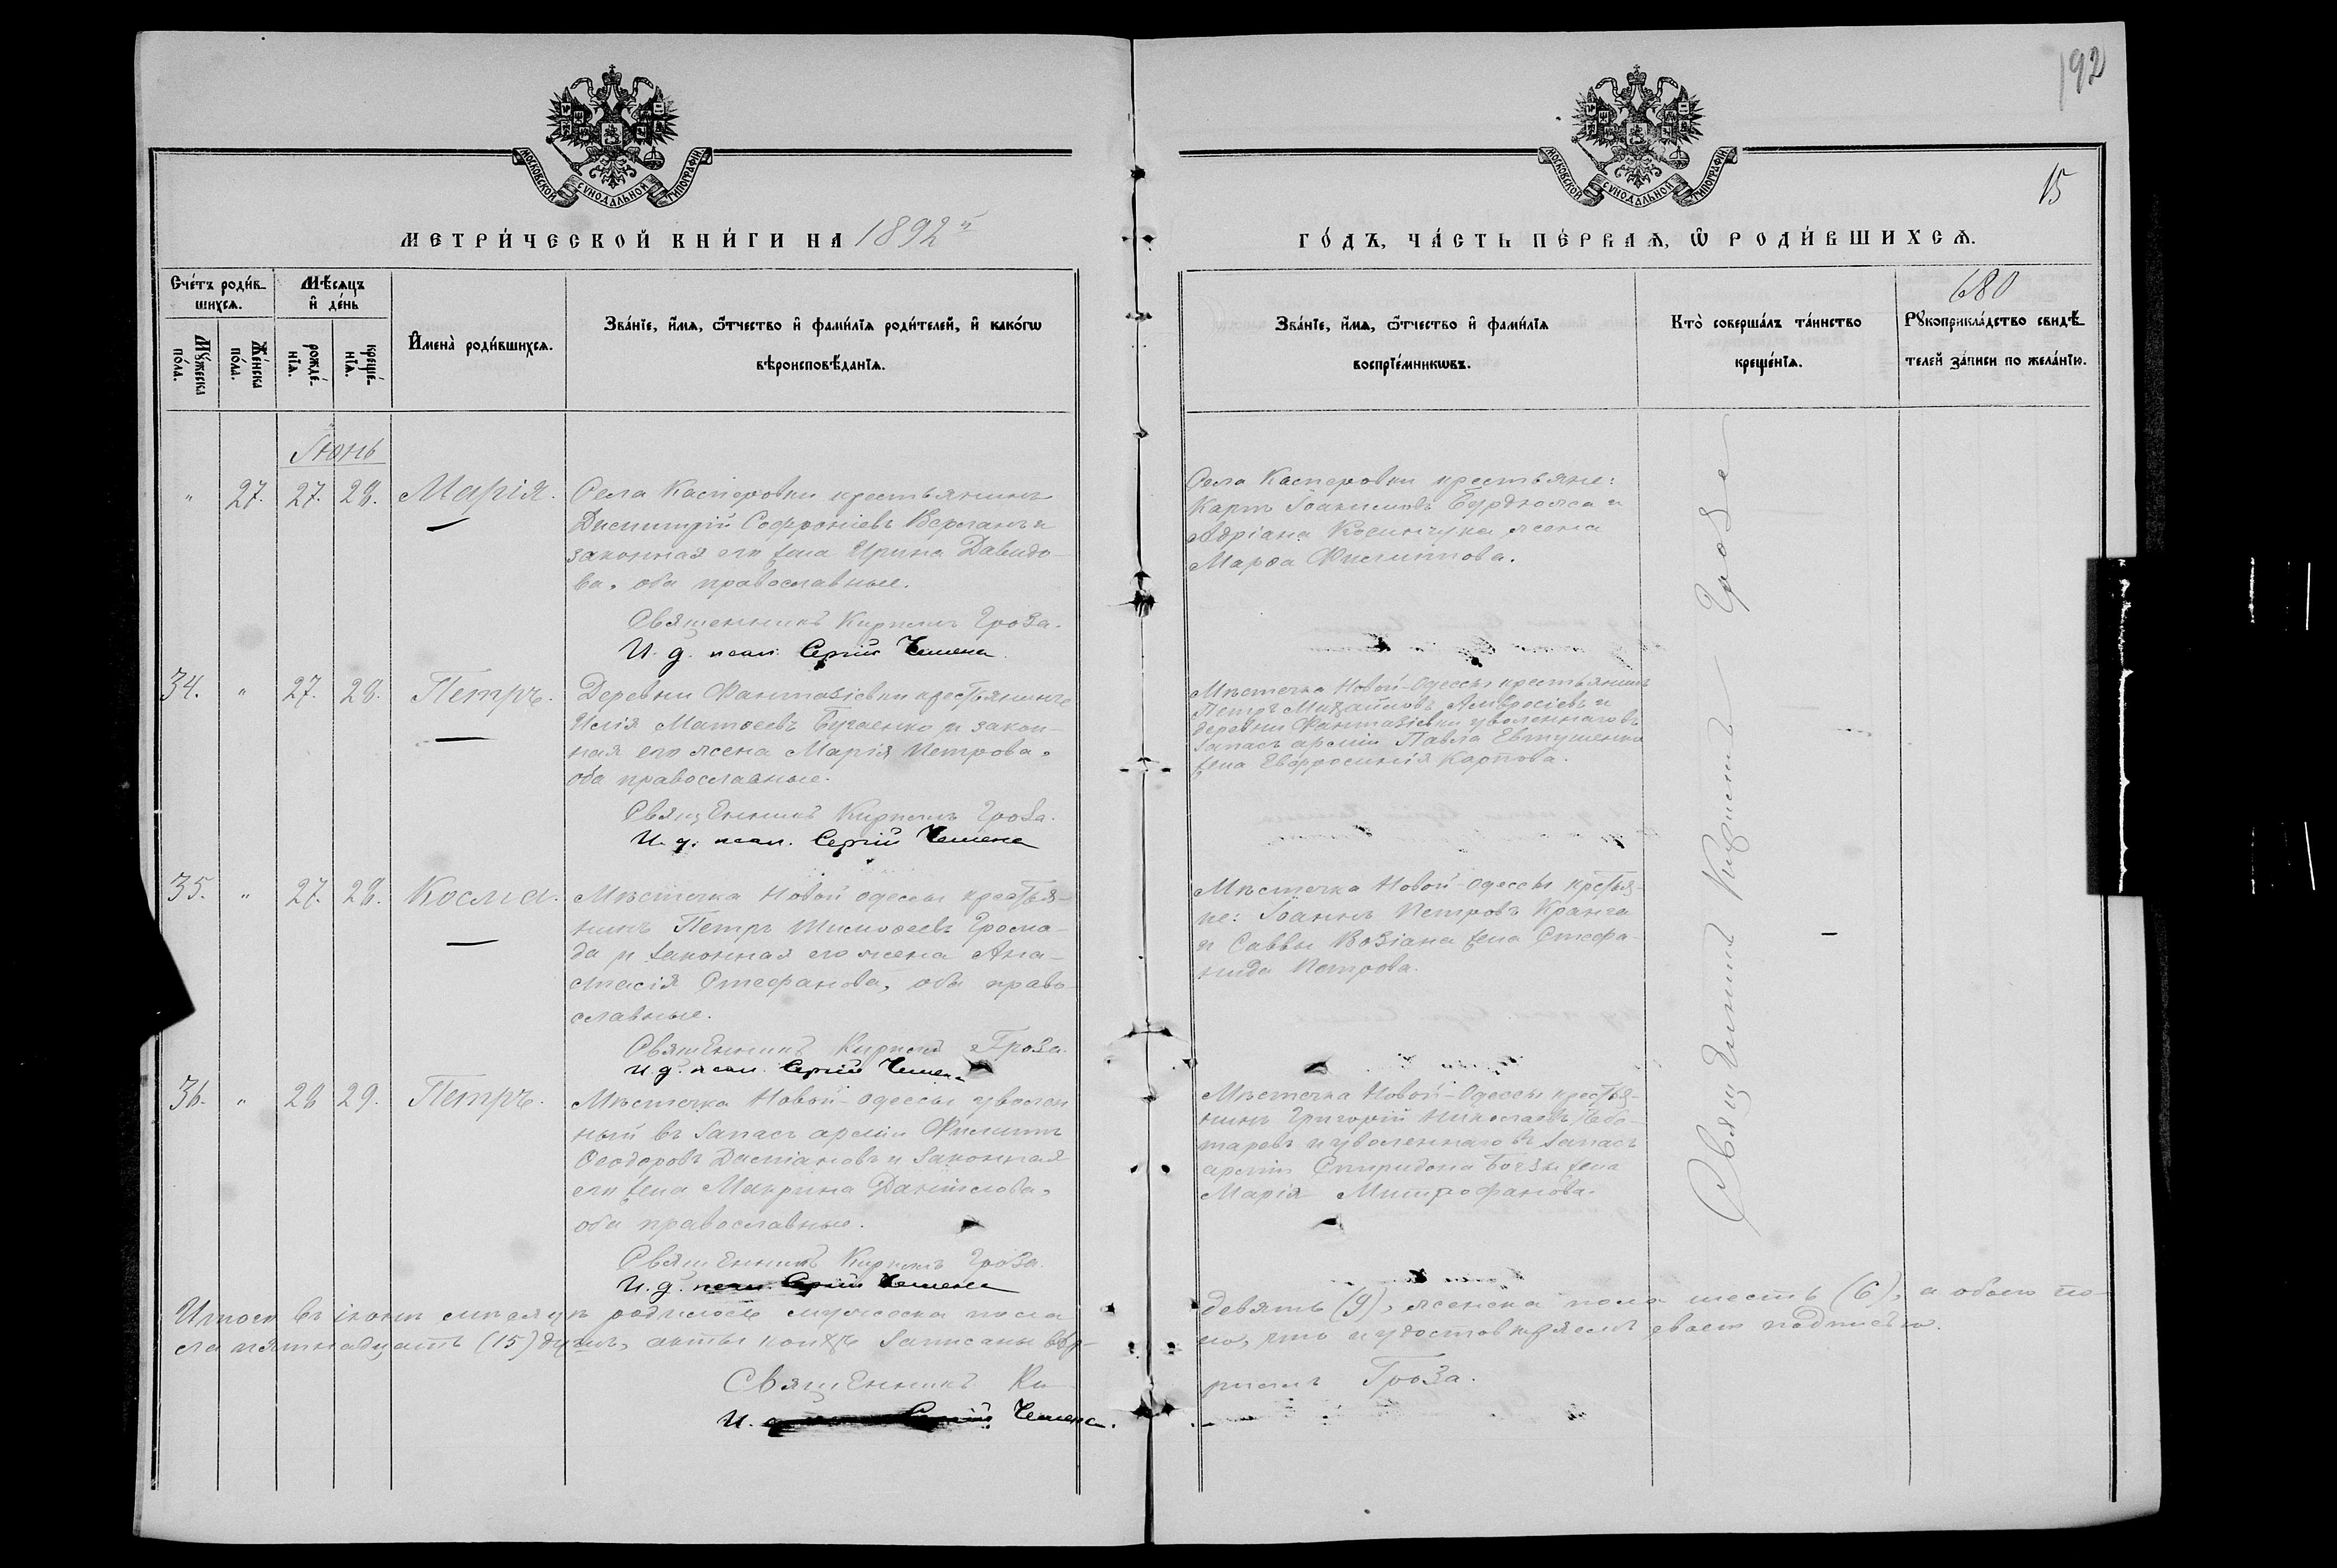 192
МОСКОВСКОЙ СѴНОДАЛЬНОЙ ТИПОГРАФІИ.
МОСКОВСКОЙ СѴНОДАЛЬНОЙ ТИПОГРАФІИ.
15
МЕТРИ́ЧЕСКОЙ КНИ́ГИ НА 1892й
ГО́ДЪ, ЧА́СТЬ ПЕ́РВАѦ, Ѽ РОДИ́ВШИХСѦ.
Сче́тъ роди́в-
шихсѧ.
Мѣ́сѧцъ
и҆ де́нь
Мꙋ́жеска
по́ла.
Же́нска
по́ла.
рожде́-
нїѧ.
креще́-
нїѧ.
И҆мена̀ роди́вшихсѧ.
Зва́нїе, и҆́мѧ, ѻ҆́тчество и҆ фами́лїѧ роди́телей, и҆ како́гѡ
вѣроисповѣ́данїѧ.
Зва́нїе, и҆́мѧ, ѻ҆́тчество и҆ фами́лїѧ
воспрїе́мникѡвъ.
Кто̀ соверша́лъ та́инство
креще́нїѧ.
680
Рꙋкоприкла́дство свидѣ́-
телей за́писи по жела́нїю.
Іюнь
" 27. 27. 28. Марія.
Села Касперовки крестьянинъ
Димитрій Софроніевъ Верланъ и
законная его жена Ирина Давидо-
ва, оба православные.
Священникъ Кириллъ Гроза.
И. д. псал. Сергій Чемена
Села Касперовки крестьяне:
Карпъ Іоакимовъ Бурдюжа и
Адріана Косинчука жена
Марѳа Филиппова.
34. " 27. 28. Петръ.
Деревни Фантазіевки крестьянинъ
Илія Матѳеевъ Бугаенко и закон-
ная его жена Марія Петрова,
оба православные.
Священникъ Кириллъ Гроза.
И. д. псал. Сергій Чемена
Мѣстечка Новой-Одессы крестьянинъ
Петръ Михайловъ Амвросіевъ и
деревни Фантазіевки уволеннаго въ
запасъ арміи Павла Евтушенко
жена Евфросинія Карпова.
35. " 27. 28. Косма.
Мѣстечка Новой Одессы крестья-
нинъ Петръ Тимоѳеевъ Грома-
да и законная его жена Ана-
стасія Стефанова, оба право-
славные.
Священникъ Кириллъ Гроза
И. д. псал. Сергій Чемена
Мѣстечка Новой-Одессы крестья-
не: Іоаннъ Петровъ Кранга
и Саввы Возіана жена Стефа-
нида Петрова.
36. " 28 29. Петръ.
Мѣстечка Новой-Одессы уволен
ный въ запасъ арміи Филиппъ
Ѳеодоровъ Даміановъ и законная
его жена Макрина Даніилова,
оба православные.
Священникъ Кириллъ Гроза.
И. д. псал. Сергій Чемена
Мѣстечка Новой-Одессы крестья-
нинъ Григорій Николаевъ Чебо-
таревъ и уволеннаго въ запасъ
арміи Спиридона жена
Марія Митрофанова.
Священникъ Кириллъ Гроза
Итого въ іюнѣ мѣсяцѣ родилось мужеска пола девять (9), женска пола шесть (6), а обоего по-
ла пятнадцать (15) душъ, акты коихъ записаны вѣр-но, что и удостовѣряемъ своею подписью.
Священникъ Кириллъ Гроза.
И. д. псал. Сергій Чемена.